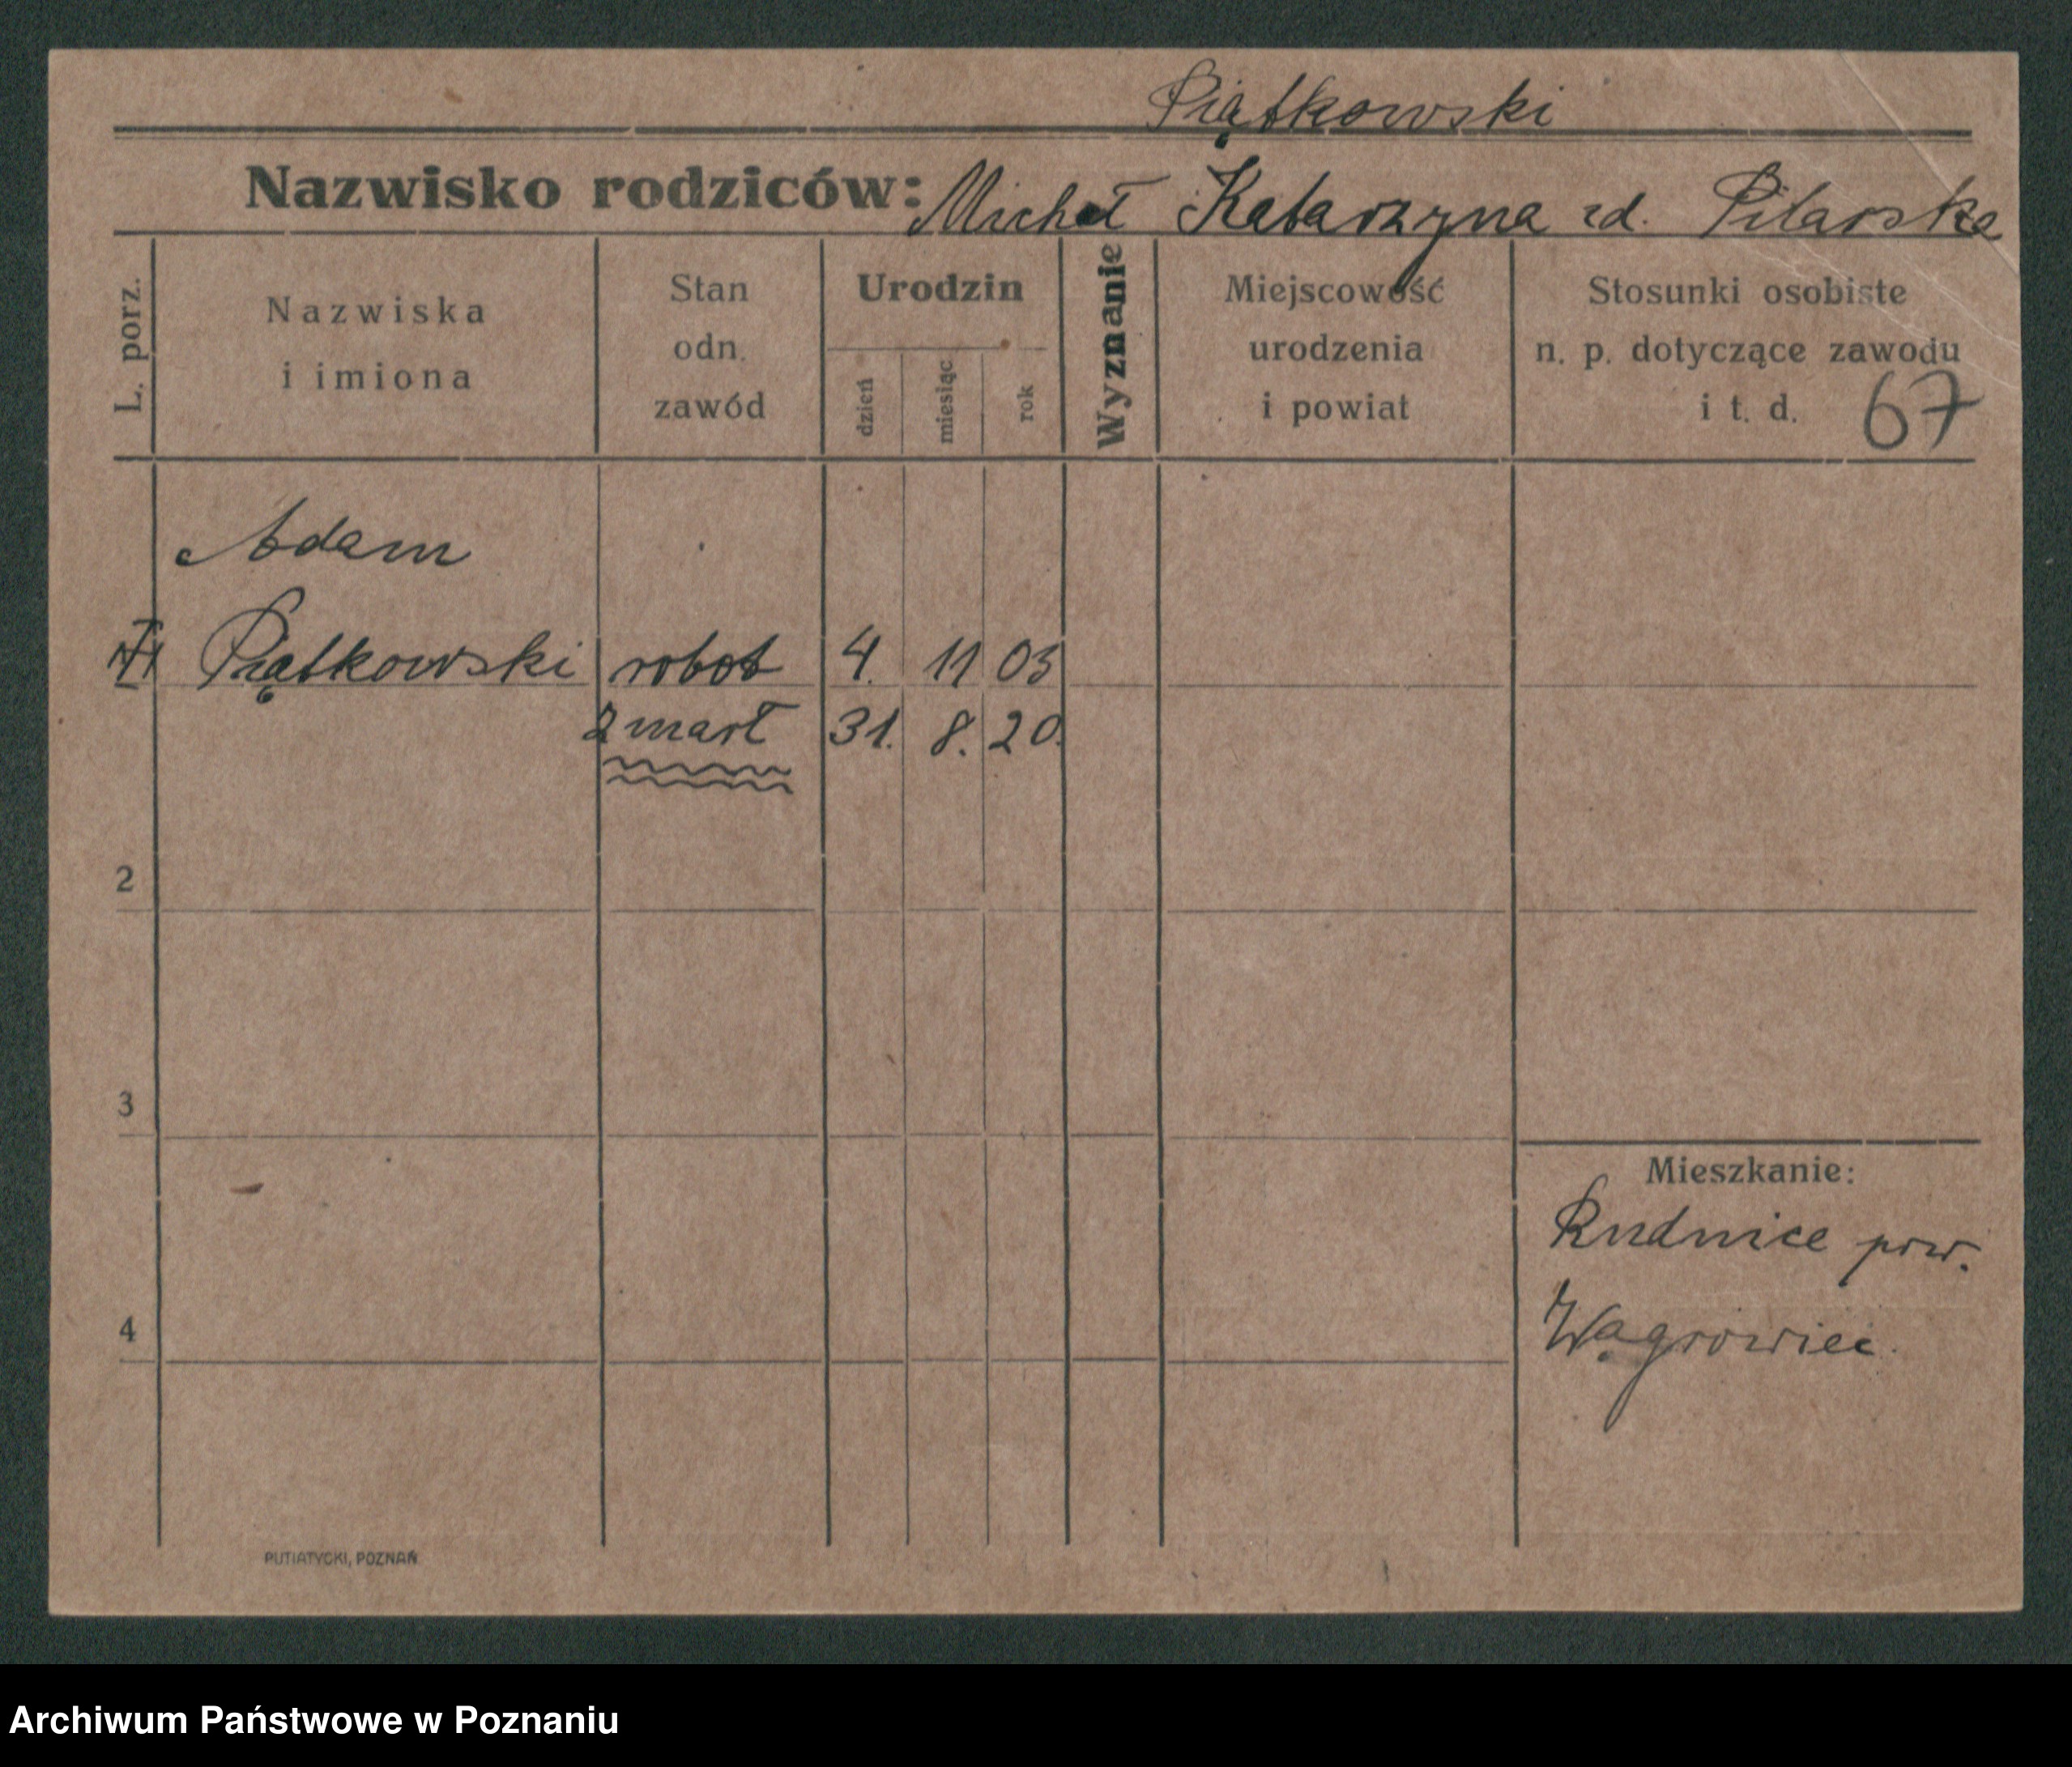 Piątkowski
Nazwisko rodziców: Michał Katarzyna zd. Pilarska
L. porz.
Nazwiska
i imiona
Stan
odn.
zawód
Urodzin
dzień
miesiąc
rok
Wyznanie
Miejscowość
urodzenia
i powiat
Stosunki osobiste
n. p. dotyczące zawodu
i t. d. 67
Adam
Piątkowski robot 4. 11 03
zmarł 31. 8. 20.
2
3
4
Mieszkanie:
Rudnice pow.
Wągrowiec.
PUTIATYCKI, POZNAŃ
Archiwum Państwowe w Poznaniu